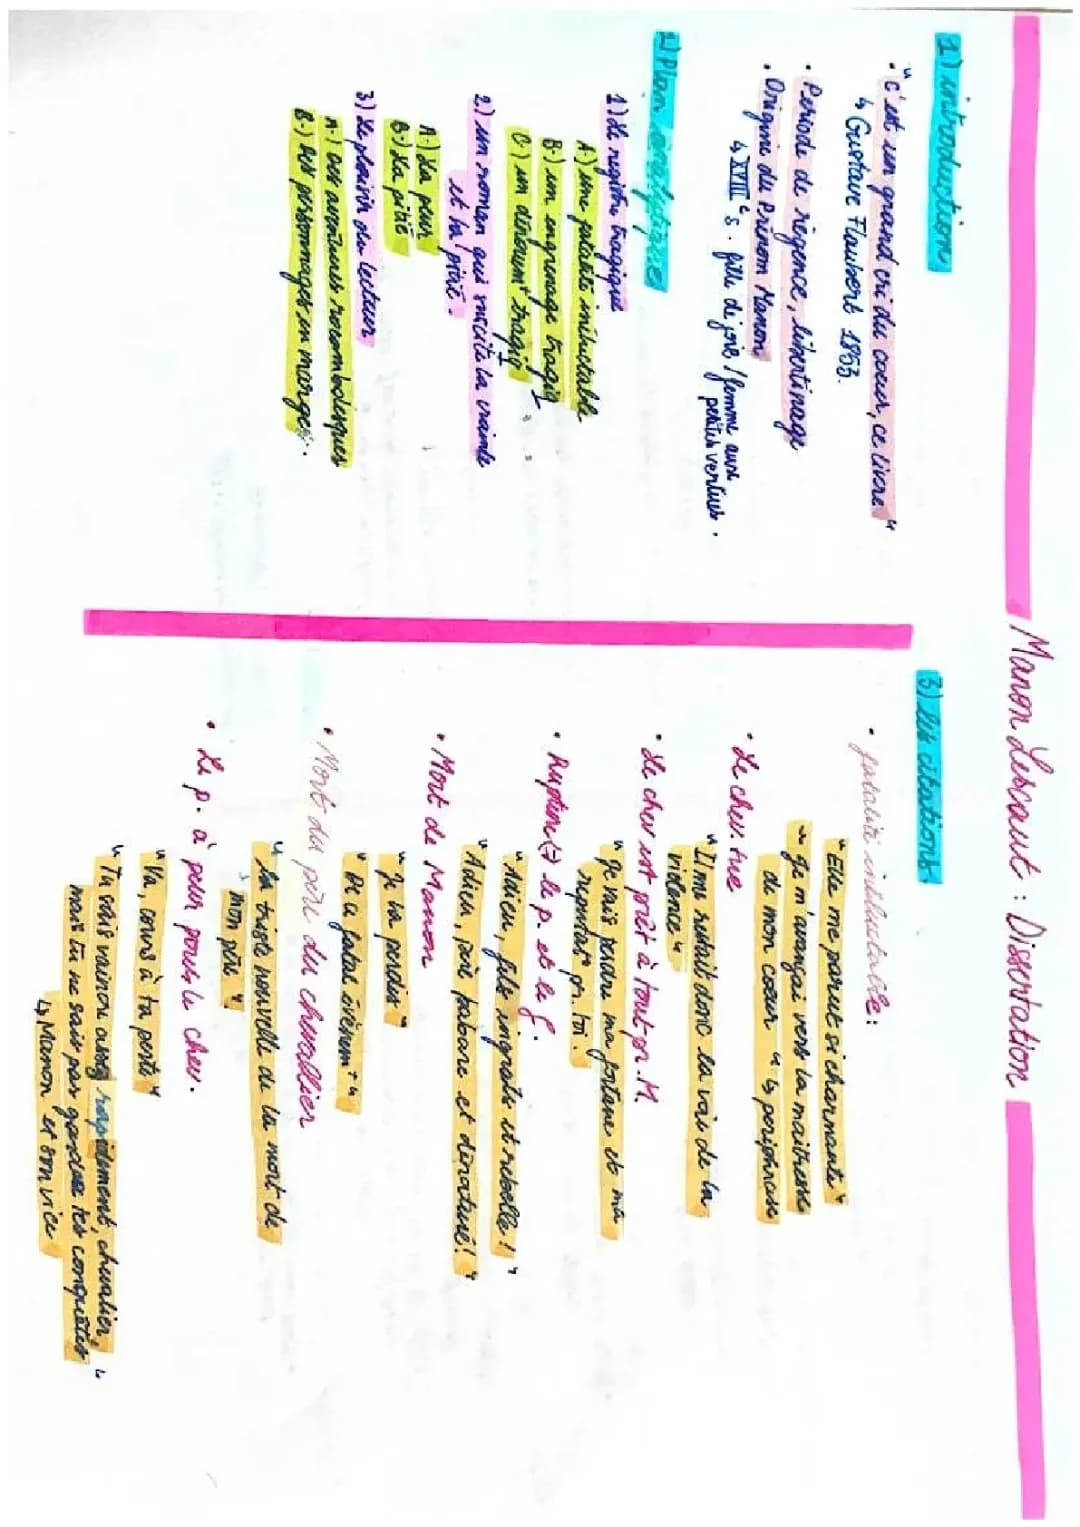 Manon Lescaut : Dissertation
1) introduction
• "C'est un grand cri du coeur, ce livre"
↳ Gustave Flaubert 1853.
• Periode de régence, libertinage
• Origine du Prénom Manon
↳ XVIIIe s. fille de joie / femme aux
petites vertues.
2) Plan
1) Le registre tragique
A.) une fatalité inéluctable
B.) un engrenage tragiq
C.) un dénoumt tragiq
2.) un roman qui suscite la crainte
et la pitié.
A.) La peur
B.) La pitié
3) Le plaisir du lecteur
A.) Des aventures rocambolesques
B.) Des personnages en marges.
3) les citations.
• fatalité inéluctable :
"Elle me parut si charmante"
"je m'avançai vers la maitresse
de mon coeur" ↳ periphrase
• Le chev. tue
"Il me restait donc la voie de la
violence"
• Le chev est prêt à tout pr. M.
"je vais perdre ma fortune et ma
réputat° pr. toi
• Rupture (→) le p. et le f.
"Adieu, fils ingrat et rebelle!"
"Adieu, père barbare et dénaturé!"
• Mort de Manon
"je la perdis"
"De ce fatal évènemt"
• Mort du père du chevallier
"la triste nouvelle de la mort de
mon père"
• Le p. à peur pour le chev.
"Va, cours à ta perte"
"Tu sais vaincre assez rapidement, chevalier,
mais tu ne sais pas garder tes conquêtes"
↳ Manon et son vice